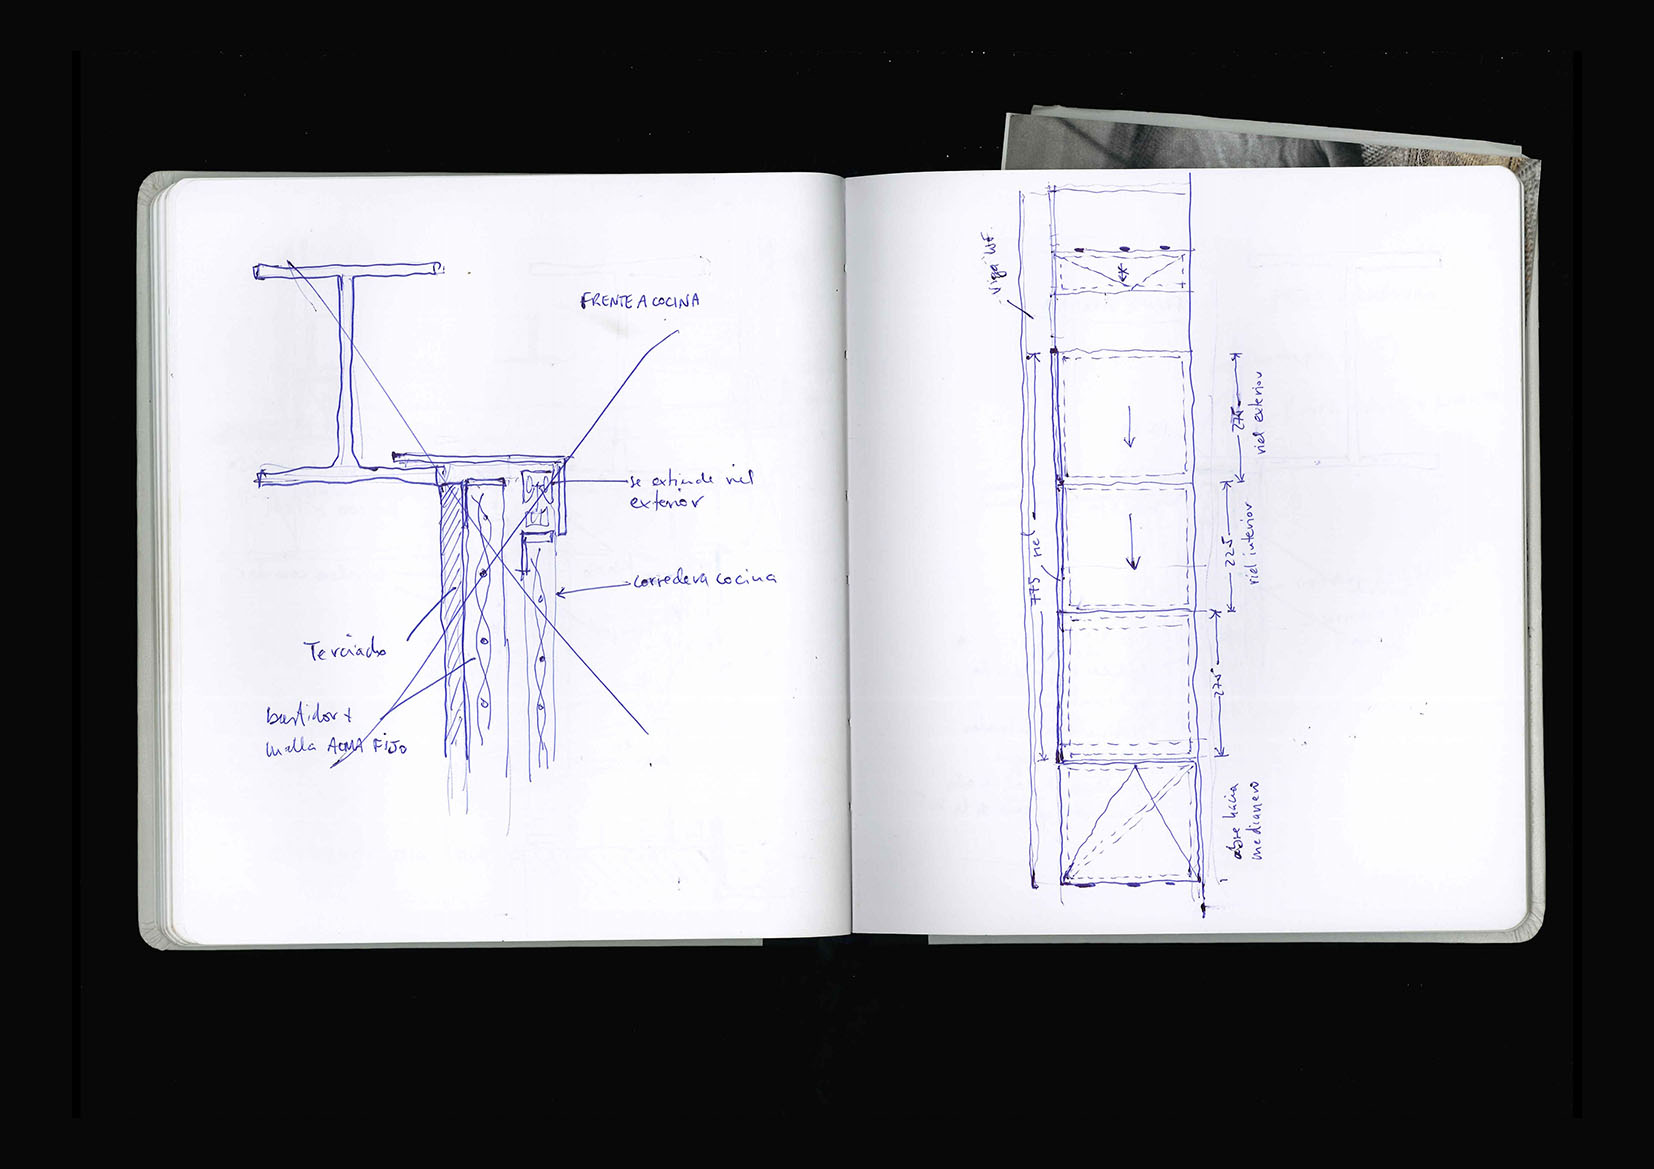 FRENTE A COCINA
se extiende riel
exterior
corredera cocina
Terciado
bastidor +
malla ACMA FIJO
Viga WF.
775 riel
275
riel exterior
225
riel interior
275
abre hacia
medianero